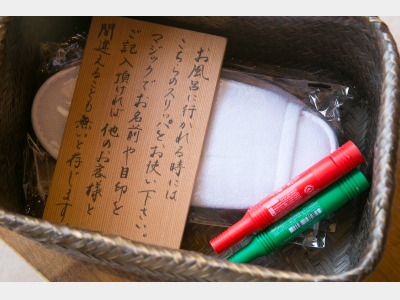 お風呂に行かれる時には
こちらのスリッパをお使い下さい。
マジックでお名前や目印を
ご記入頂ければ他のお客様と
間違えることも無いと存じます